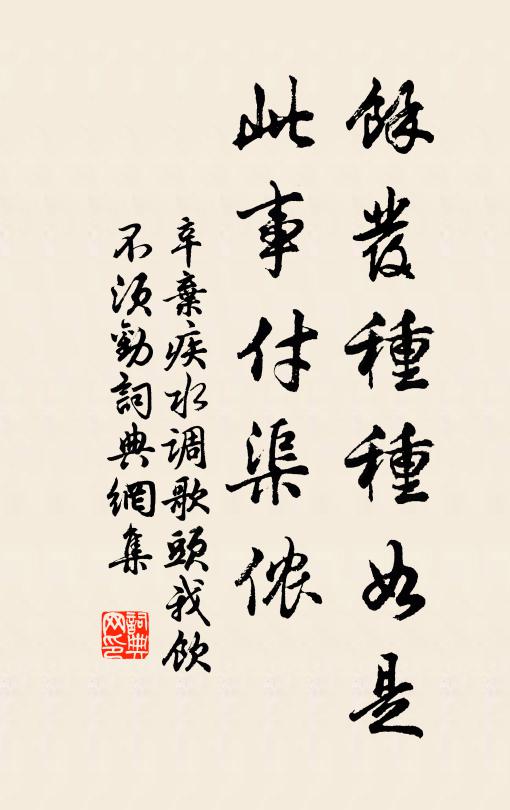 餘發種種如是
此事付渠侬
辛棄疾水调歌頭我飲
不须勸詞典網集
詞典
网印